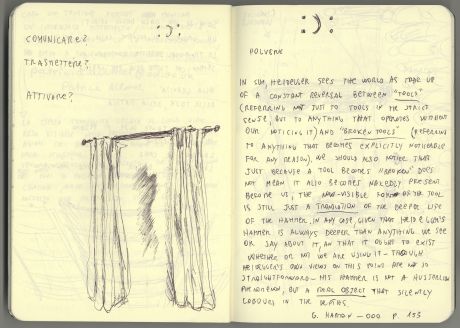 :):
COMUNICARE?
TRASMETTERE?
ATTIVARE?
:):
POLVERE
IN SUM, HEIDEGGER SEES THE WORLD AS MADE UP
OF A CONSTANT REVERSAL BETWEEN "TOOLS"
(REFERRING NOT JUST TO TOOLS IN THE STRICT
SENSE, BUT TO ANYTHING THAT OPERATES WITHOUT
OUR NOTICING IT) AND "BROKEN TOOLS" (REFERRING
TO ANYTHING THAT BECOMES EXPLICITLY NOTICEABLE
FOR ANY REASON). WE SHOULD ALSO NOTICE THAT
JUST BECAUSE A TOOL BECOMES "BROKEN" DOES
NOT MEAN IT ALSO BECOMES NAKEDLY PRESENT
US, THE NOW-VISIBLE FORM OF THE TOOL
IS STILL JUST A TRANSLATION OF THE DEEPER LIFE
OF THE HAMMER. IN ANY CASE, GIVEN THAT HEIDEGGER'S
HAMMER IS ALWAYS DEEPER THAN ANYTHING WE SEE
OR SAY ABOUT IT, AN THAT IT OUGHT TO EXIST
WHETHER OR NOT WE ARE USING IT - THOUGH
HEIDEGGER'S OWN VIEWS ON THIS POINT ARE NOT SO
STRAIGHTFORWARD - HIS HAMMER IS NOT A HUSSERLIAN
PHENOMENON, BUT A REAL OBJECT THAT SILENTLY
LABOURS IN THE DEPTHS.
G. HARMAN - OOO P. 153